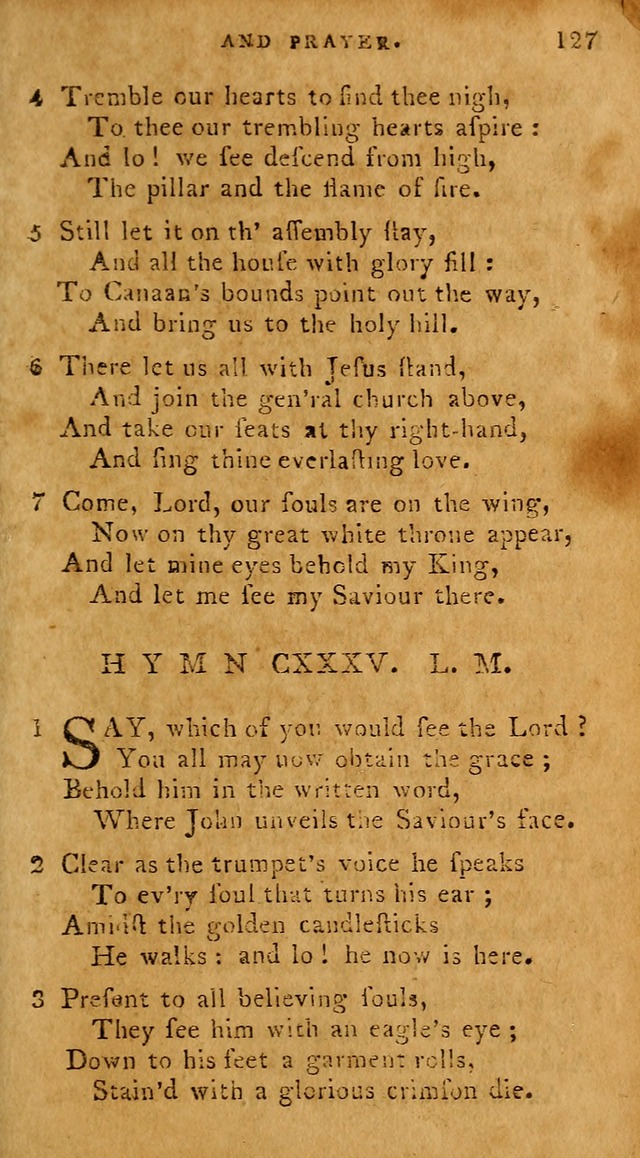 AND PRAYER. 127
4 Tremble our hearts to find thee nigh,
To thee our trembling hearts aſpire :
And lo ! we ſee deſcend from high,
The pillar and the flame of fire.
5 Still let it on th' aſſembly ſtay,
And all the houſe with glory fill :
To Canaan's bounds point out the way,
And bring us to the holy hill.
6 There let us all with Jeſus ſtand,
And join the gen'ral church above,
And take our ſeats at thy right-hand,
And ſing thine everlaſting love.
7 Come, Lord, our ſouls are on the wing,
Now on thy great white throne appear,
And let mine eyes behold my King,
And let me ſee my Saviour there.
HYMN CXXXV. L. M.
1 SAY, which of you would ſee the Lord ?
You all may now obtain the grace ;
Behold him in the written word,
Where John unveils the Saviour's face.
2 Clear as the trumpet's voice he ſpeaks
To ev'ry ſoul that turns his ear ;
Amidſt the golden candleſticks
He walks : and lo ! he now is here.
3 Preſent to all believing ſouls,
They ſee him with an eagle's eye ;
Down to his feet a garment rolls,
Stain'd with a glorious crimſon die.